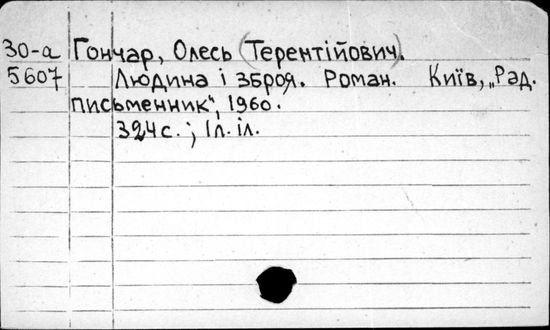 30-а Гончар, Олесь (Терентійович).
5607 Людина і зброя. Роман. Київ, „Рад.
письменник", 1960.
324 с.; 1л. іл.